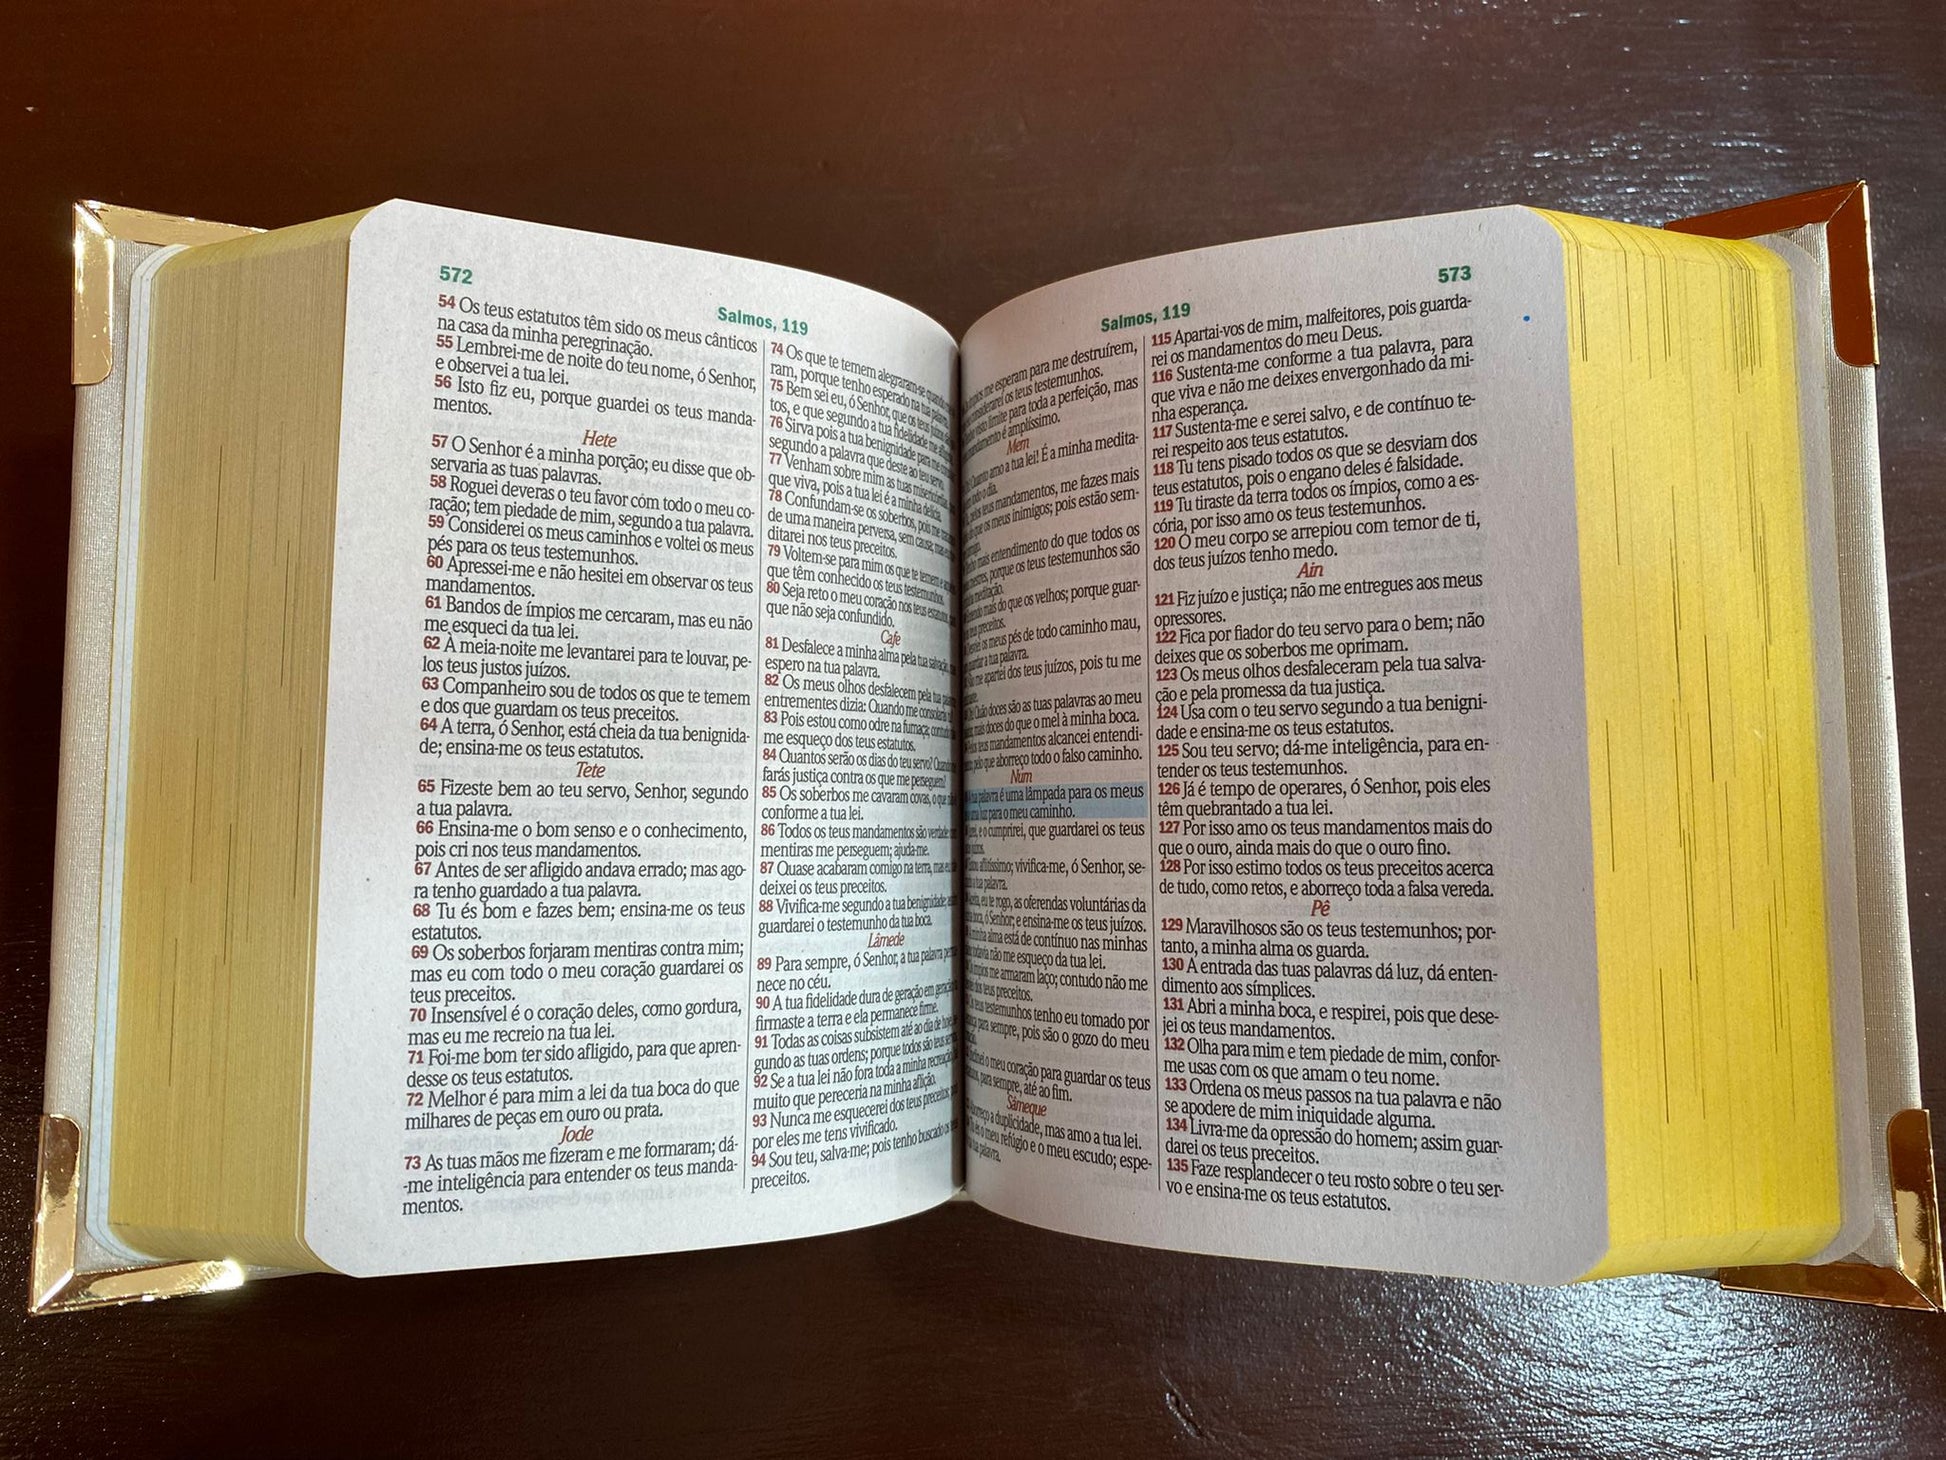 572
Salmos, 119
54 Os teus estatutos têm sido os meus cânticos
na casa da minha peregrinação.
55 Lembrei-me de noite do teu nome, ó Senhor,
e observei a tua lei.
56 Isto fiz eu, porque guardei os teus manda-
mentos.
Hete
57 O Senhor é a minha porção; eu disse que ob-
servaria as tuas palavras.
58 Roguei deveras o teu favor com todo o meu co-
ração; tem piedade de mim, segundo a tua palavra.
59 Considerei os meus caminhos e voltei os meus
pés para os teus testemunhos.
60 Apressei-me e não hesitei em observar os teus
mandamentos.
61 Bandos de ímpios me cercaram, mas eu não
me esqueci da tua lei.
62 À meia-noite me levantarei para te louvar, pe-
los teus justos juízos.
63 Companheiro sou de todos os que te temem
e dos que guardam os teus preceitos.
64 A terra, ó Senhor, está cheia da tua benignida-
de; ensina-me os teus estatutos.
Tete
65 Fizeste bem ao teu servo, Senhor, segundo
a tua palavra.
66 Ensina-me o bom senso e o conhecimento,
pois cri nos teus mandamentos.
67 Antes de ser afligido andava errado; mas ago-
ra tenho guardado a tua palavra.
68 Tu és bom e fazes bem; ensina-me os teus
estatutos.
69 Os soberbos forjaram mentiras contra mim;
mas eu com todo o meu coração guardarei os
teus preceitos.
70 Insensível é o coração deles, como gordura,
mas eu me recreio na tua lei.
71 Foi-me bom ter sido afligido, para que apren-
desse os teus estatutos.
72 Melhor é para mim a lei da tua boca do que
milhares de peças em ouro ou prata.
Jode
73 As tuas mãos me fizeram e me formaram; dá-
-me inteligência para entender os teus manda-
mentos.
74 Os que te temem alegraram-se
ram, porque tenho esperado na tua palavra.
75 Bem sei eu, ó Senhor, que os teus
tos, e que segundo a tua fidelidade me
76 Sirva pois a tua benignidade para me
segundo a palavra que deste ao teu servo.
77 Venham sobre mim as tuas
que viva, pois a tua lei é a minha delícia.
78 Confundam-se os soberbos, pois me
de uma maneira perversa, sem causa; mas
ditarei nos teus preceitos.
79 Voltem-se para mim os que te temem e
que têm conhecido os teus testemunhos.
80 Seja reto o meu coração nos teus
que não seja confundido.
Cafe
81 Desfalece a minha alma pela tua
espero na tua palavra.
82 Os meus olhos desfalecem pela tua
entrementes dizia: Quando me
83 Pois estou como odre na fumaça;
me esqueço dos teus estatutos.
84 Quantos serão os dias do teu servo?
farás justiça contra os que me perseguem?
85 Os soberbos me cavaram covas, o que
conforme a tua lei.
86 Todos os teus mandamentos são
mentiras me perseguem; ajuda-me.
87 Quase acabaram comigo na terra, mas
deixei os teus preceitos.
88 Vivifica-me segundo a tua benignidade;
guardarei o testemunho da tua boca.
Lâmede
89 Para sempre, ó Senhor, a tua palavra
nece no céu.
90 A tua fidelidade dura de geração em
firmaste a terra e ela permanece firme.
91 Todas as coisas subsistem até ao dia de
gundo as tuas ordens; porque todos são teus
92 Se a tua lei não fora toda a minha
muito que pereceria na minha aflição.
93 Nunca me esquecerei dos teus preceitos;
por eles me tens vivificado.
94 Sou teu, salva-me; pois tenho buscado os
preceitos.
573
Salmos, 119
me esperam para me destruírem,
considerarei os teus testemunhos.
visto limite para toda a perfeição, mas
é amplíssimo.
Mem
Quanto amo a tua lei! É a minha medita-
todo o dia.
pelos teus mandamentos, me fazes mais
que os meus inimigos; pois estão sem-
mais entendimento do que todos os
porque os teus testemunhos são
meditação.
mais do que os velhos; porque guar-
teus preceitos.
os meus pés de todo caminho mau,
guardar a tua palavra.
me apartei dos teus juízos, pois tu me
Quão doces são as tuas palavras ao meu
mais doces do que o mel à minha boca.
teus mandamentos alcancei entendi-
pelo que aborreço todo o falso caminho.
Num
tua palavra é uma lâmpada para os meus
uma luz para o meu caminho.
e o cumprirei, que guardarei os teus
aflitíssimo; vivifica-me, ó Senhor, se-
a tua palavra.
eu te rogo, as oferendas voluntárias da
boca, ó Senhor; e ensina-me os teus juízos.
minha alma está de contínuo nas minhas
todavia não me esqueço da tua lei.
ímpios me armaram laço; contudo não me
dos teus preceitos.
teus testemunhos tenho eu tomado por
para sempre, pois são o gozo do meu
o meu coração para guardar os teus
para sempre, até ao fim.
Sâmeque
a duplicidade, mas amo a tua lei.
o meu refúgio e o meu escudo; espe-
tua palavra.
115 Apartai-vos de mim, malfeitores, pois guarda-
rei os mandamentos do meu Deus.
116 Sustenta-me conforme a tua palavra, para
que viva e não me deixes envergonhado da mi-
nha esperança.
117 Sustenta-me e serei salvo, e de contínuo te-
rei respeito aos teus estatutos.
118 Tu tens pisado todos os que se desviam dos
teus estatutos, pois o engano deles é falsidade.
119 Tu tiraste da terra todos os ímpios, como a es-
cória, por isso amo os teus testemunhos.
120 O meu corpo se arrepiou com temor de ti,
dos teus juízos tenho medo.
Ain
121 Fiz juízo e justiça; não me entregues aos meus
opressores.
122 Fica por fiador do teu servo para o bem; não
deixes que os soberbos me oprimam.
123 Os meus olhos desfaleceram pela tua salva-
ção e pela promessa da tua justiça.
124 Usa com o teu servo segundo a tua benigni-
dade e ensina-me os teus estatutos.
125 Sou teu servo; dá-me inteligência, para en-
tender os teus testemunhos.
126 Já é tempo de operares, ó Senhor, pois eles
têm quebrantado a tua lei.
127 Por isso amo os teus mandamentos mais do
que o ouro, ainda mais do que o ouro fino.
128 Por isso estimo todos os teus preceitos acerca
de tudo, como retos, e aborreço toda a falsa vereda.
Pê
129 Maravilhosos são os teus testemunhos; por-
tanto, a minha alma os guarda.
130 A entrada das tuas palavras dá luz, dá enten-
dimento aos símplices.
131 Abri a minha boca, e respirei, pois que dese-
jei os teus mandamentos.
132 Olha para mim e tem piedade de mim, confor-
me usas com os que amam o teu nome.
133 Ordena os meus passos na tua palavra e não
se apodere de mim iniquidade alguma.
134 Livra-me da opressão do homem; assim guar-
darei os teus preceitos.
135 Faze resplandecer o teu rosto sobre o teu ser-
vo e ensina-me os teus estatutos.